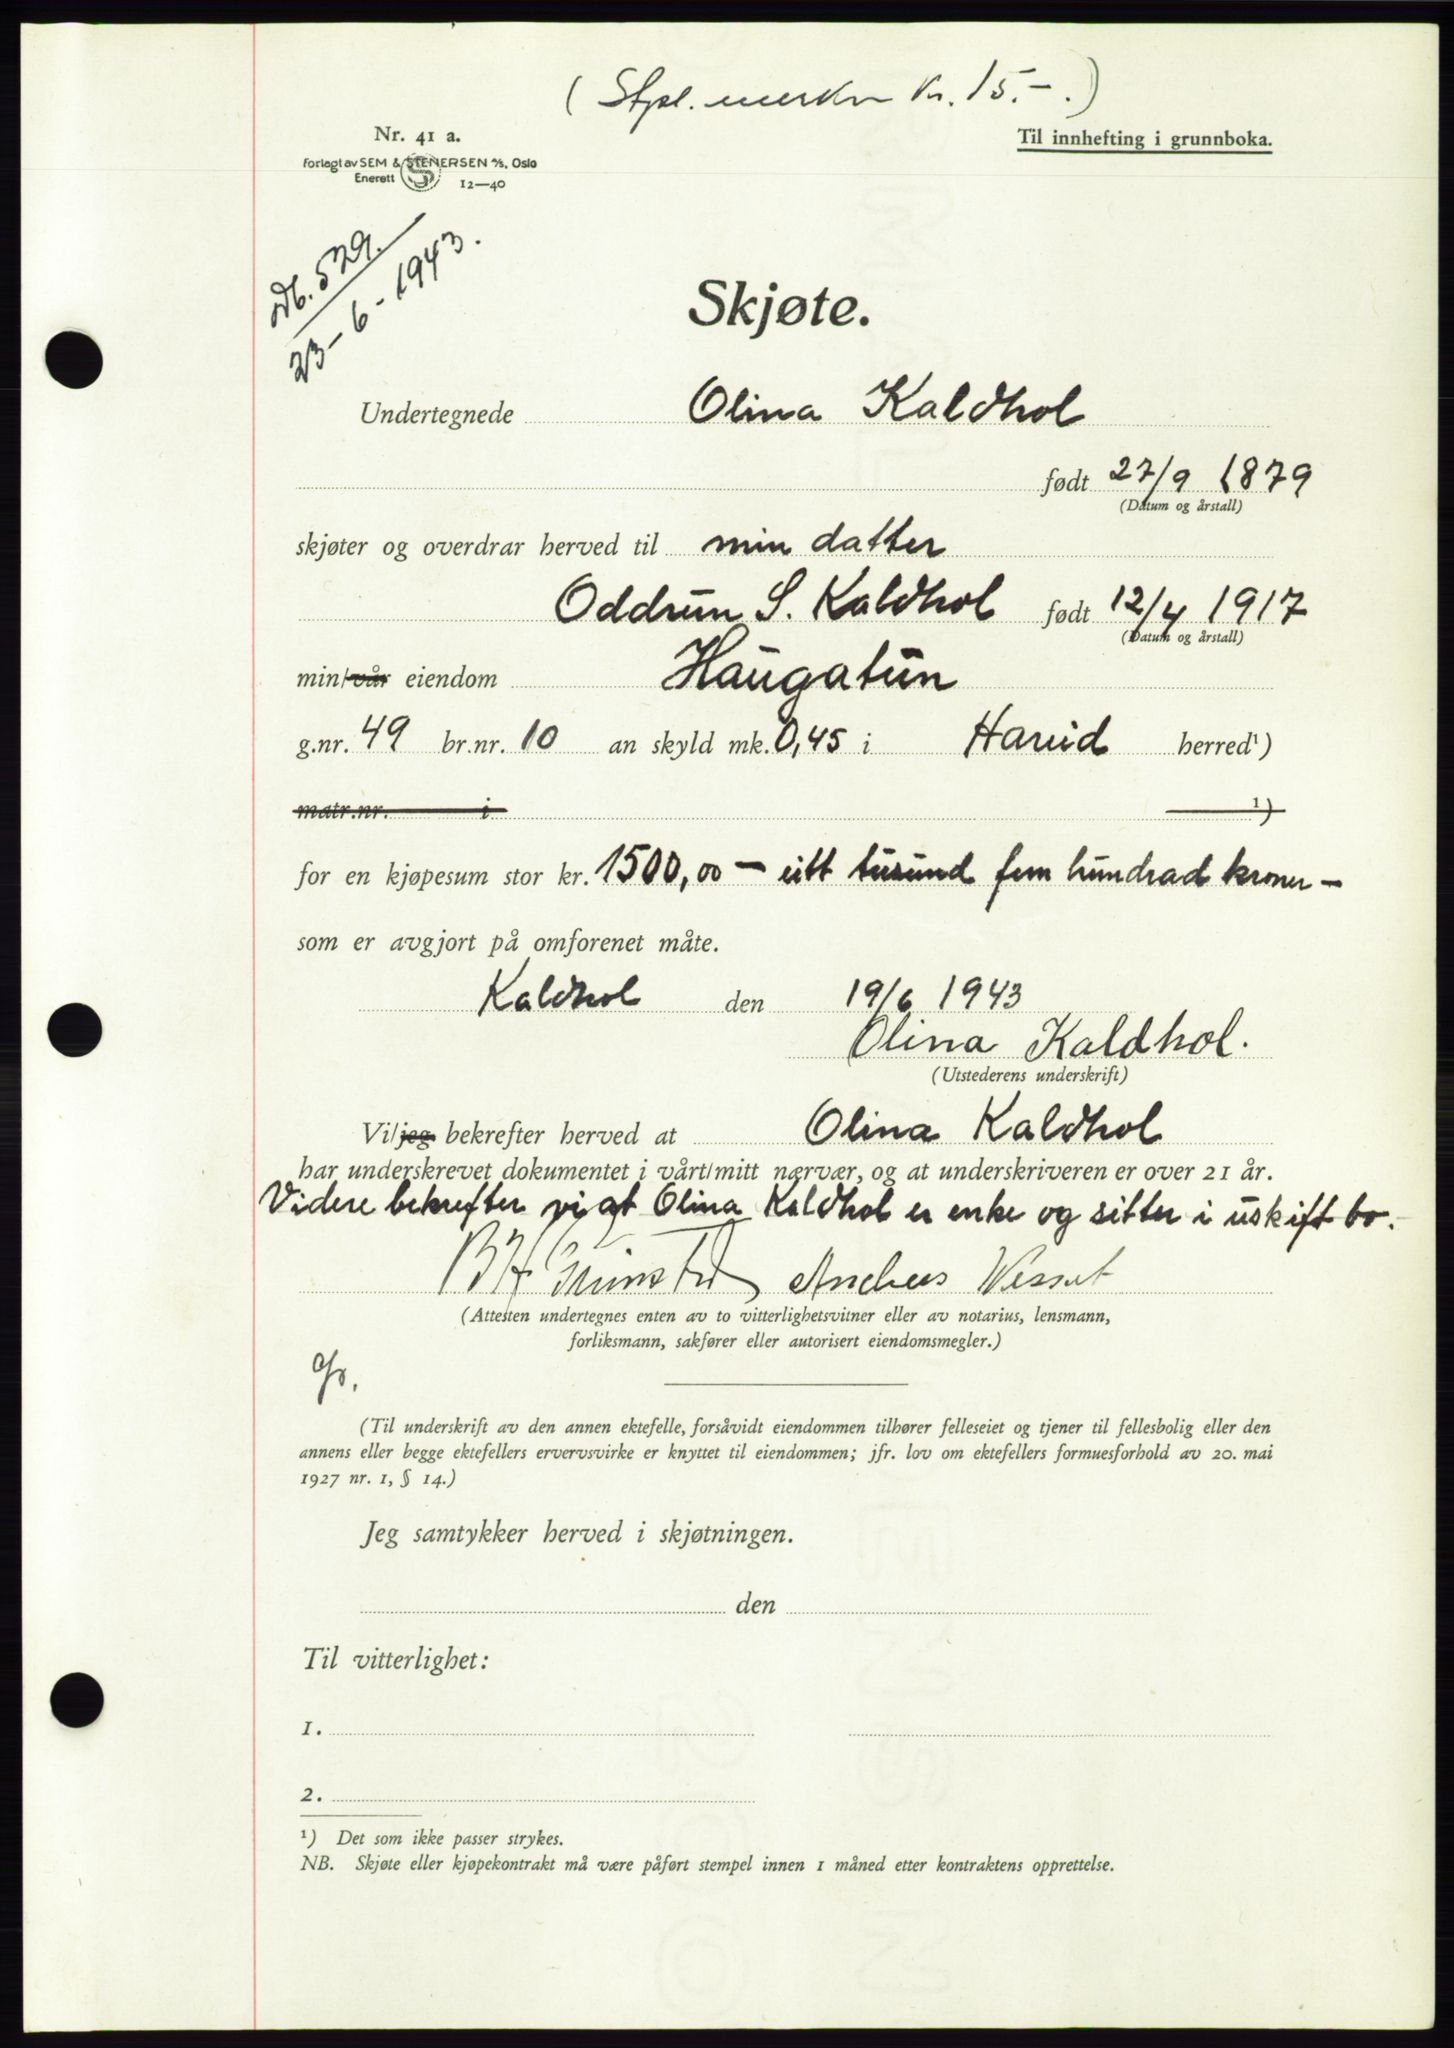 ( Stpl. merker kr. 15.-.)
Nr. 41 a.
Til innhefting i grunnboka.
Forlagt av SEM & STENERSEN A/S, Oslo
Enerett S 12—40
Db. 529.
23-6-1943.
Skjøte.
Undertegnede Olina Kaldhol
født 27/9 1879
(Datum og årstall)
skjøter og overdrar herved til min datter
Oddrun S. Kaldhol født 12/4 1917
(Datum og årstall)
min/vår eiendom Haugatun
g.nr. 49 br.nr. 10 an skyld mk. 0,45 i Hareid herred¹)
matr.nr. i ¹)
for en kjøpesum stor kr. 1500,00 — eitt tusund fem hundrad kroner —
som er avgjort på omforenet måte.
Kaldhol den 19/6 1943
Olina Kaldhol.
(Utstederens underskrift)
Vi/jeg bekrefter herved at Olina Kaldhol
har underskrevet dokumentet i vårt/mitt nærvær, og at underskriveren er over 21 år.
Videre bekrefter vi at Olina Kaldhol er enke og sitter i uskift bo.
Andreas
(Attesten undertegnes enten av to vitterlighetsvitner eller av notarius, lensmann,
forliksmann, sakfører eller autorisert eiendomsmegler.)
(Til underskrift av den annen ektefelle, forsåvidt eiendommen tilhører felleseiet og tjener til fellesbolig eller den
annens eller begge ektefellers ervervsvirke er knyttet til eiendommen; jfr. lov om ektefellers formuesforhold av 20. mai
1927 nr. 1, § 14.)
Jeg samtykker herved i skjøtningen.
den
Til vitterlighet:
1.
2.
¹) Det som ikke passer strykes.
NB. Skjøte eller kjøpekontrakt må være påført stempel innen 1 måned etter kontraktens opprettelse.